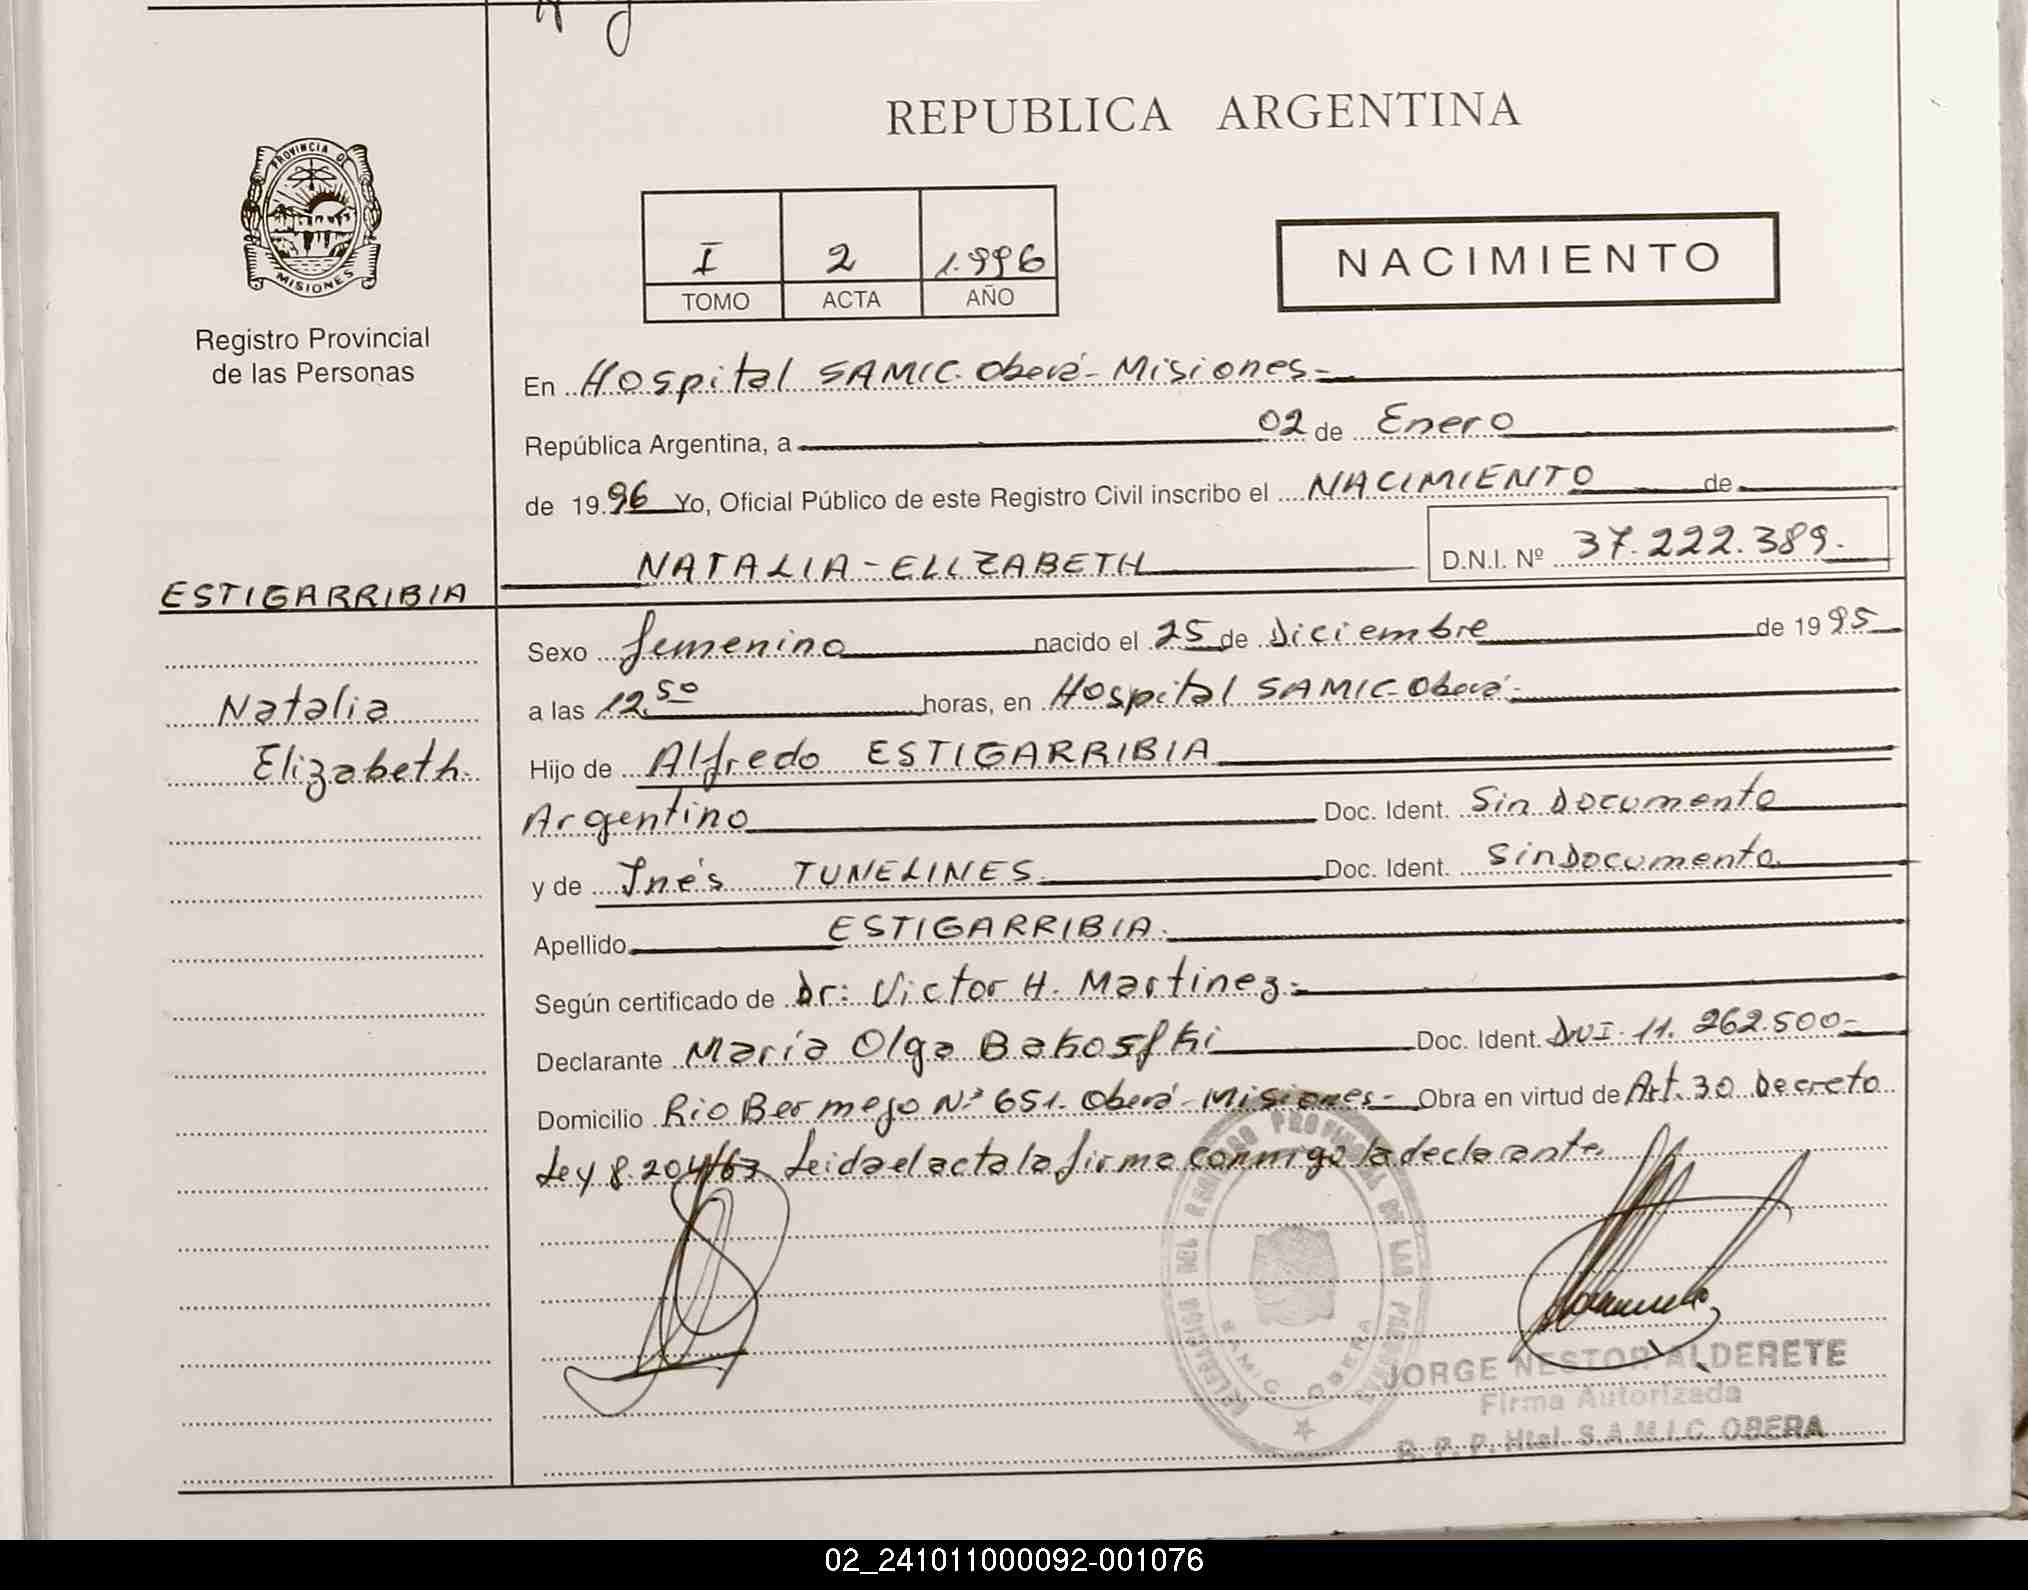 REPUBLICA ARGENTINA
PROVINCIA DE
MISIONES
Registro Provincial
de las Personas
I 2 1.996
TOMO ACTA AÑO
NACIMIENTO
En Hospital SAMIC-Oberá-Misiones-
República Argentina, a 02 de Enero
de 1996 Yo, Oficial Público de este Registro Civil inscribo el NACIMIENTO de
NATALIA-ELIZABETH D.N.I. Nº 37.222.389.
ESTIGARRIBIA
Natalia
Elizabeth.
Sexo femenino nacido el 25 de Diciembre de 1995
a las 12.50 horas, en Hospital SAMIC-Oberá-
Hijo de Alfredo ESTIGARRIBIA
Argentino Doc. Ident. Sin Documento
y de Inés TUNELINES. Doc. Ident. Sin Documento.
Apellido ESTIGARRIBIA.
Según certificado de Dr: Victor H. Martinez-
Declarante María Olga Bakosfki Doc. Ident. DNI-11.262.500-
Domicilio Rio Bermejo Nº 651-Oberá-Misiones- Obra en virtud de Art. 30 Decreto
Ley 8.204/63 Leida el acta la firma conmigo la declarante.
DELEGACION DEL REGISTRO PROVINCIAL DE LAS PERSONAS
SAMIC OBERA
JORGE NESTOR ALDERETE
Firma Autorizada
R. P. P. Htal. S.A.M.I.C. OBERA
02_241011000092-001076